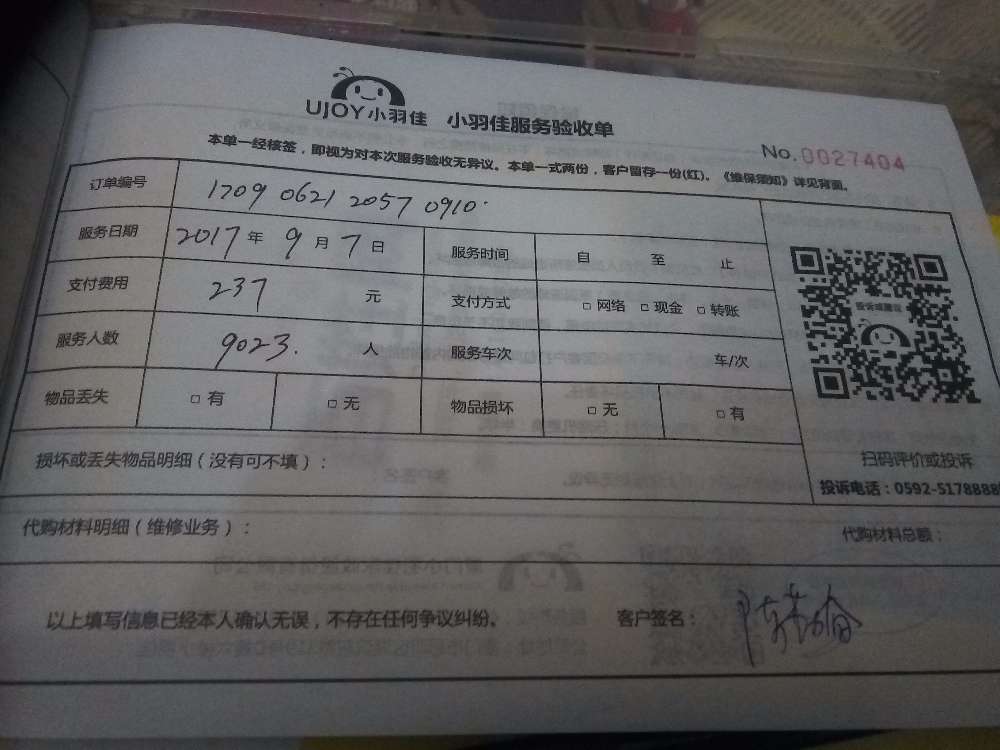 UJOY小羽佳 小羽佳服务验收单
No.0027404
本单一经核签，即视为对本次服务验收无异议。本单一式两份，客户留存一份(红)。《维保须知》详见背面。
订单编号 1709 0621 2057 0910
服务日期 2017年9月7日 服务时间 自 至 止
支付费用 237 元 支付方式 □网络 □现金 □转账
投诉或建议
服务人数 9023. 人 服务车次 车/次
物品丢失 □有 □无 物品损坏 □无 □有
损坏或丢失物品明细（没有可不填）：
扫码评价或投诉
投诉电话：0592-5178888
代购材料明细（维修业务）：
代购材料总额：
以上填写信息已经本人确认无误，不存在任何争议纠纷。 客户签名：